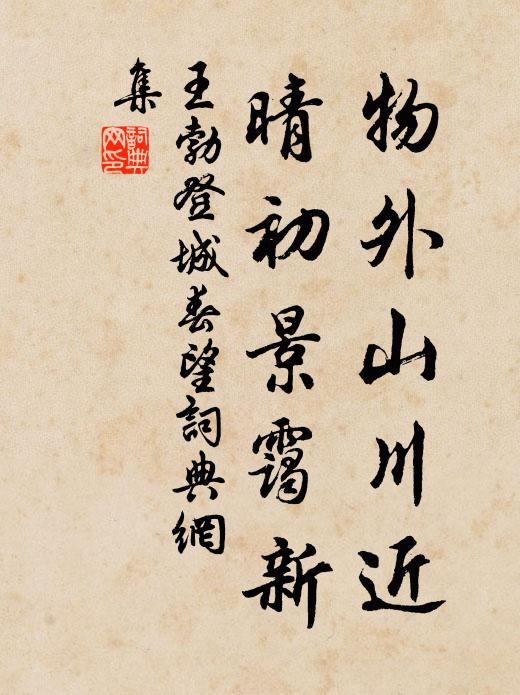 物外山川近
晴初景靄新
王勃登城春望詞典網
集
詞典
网印